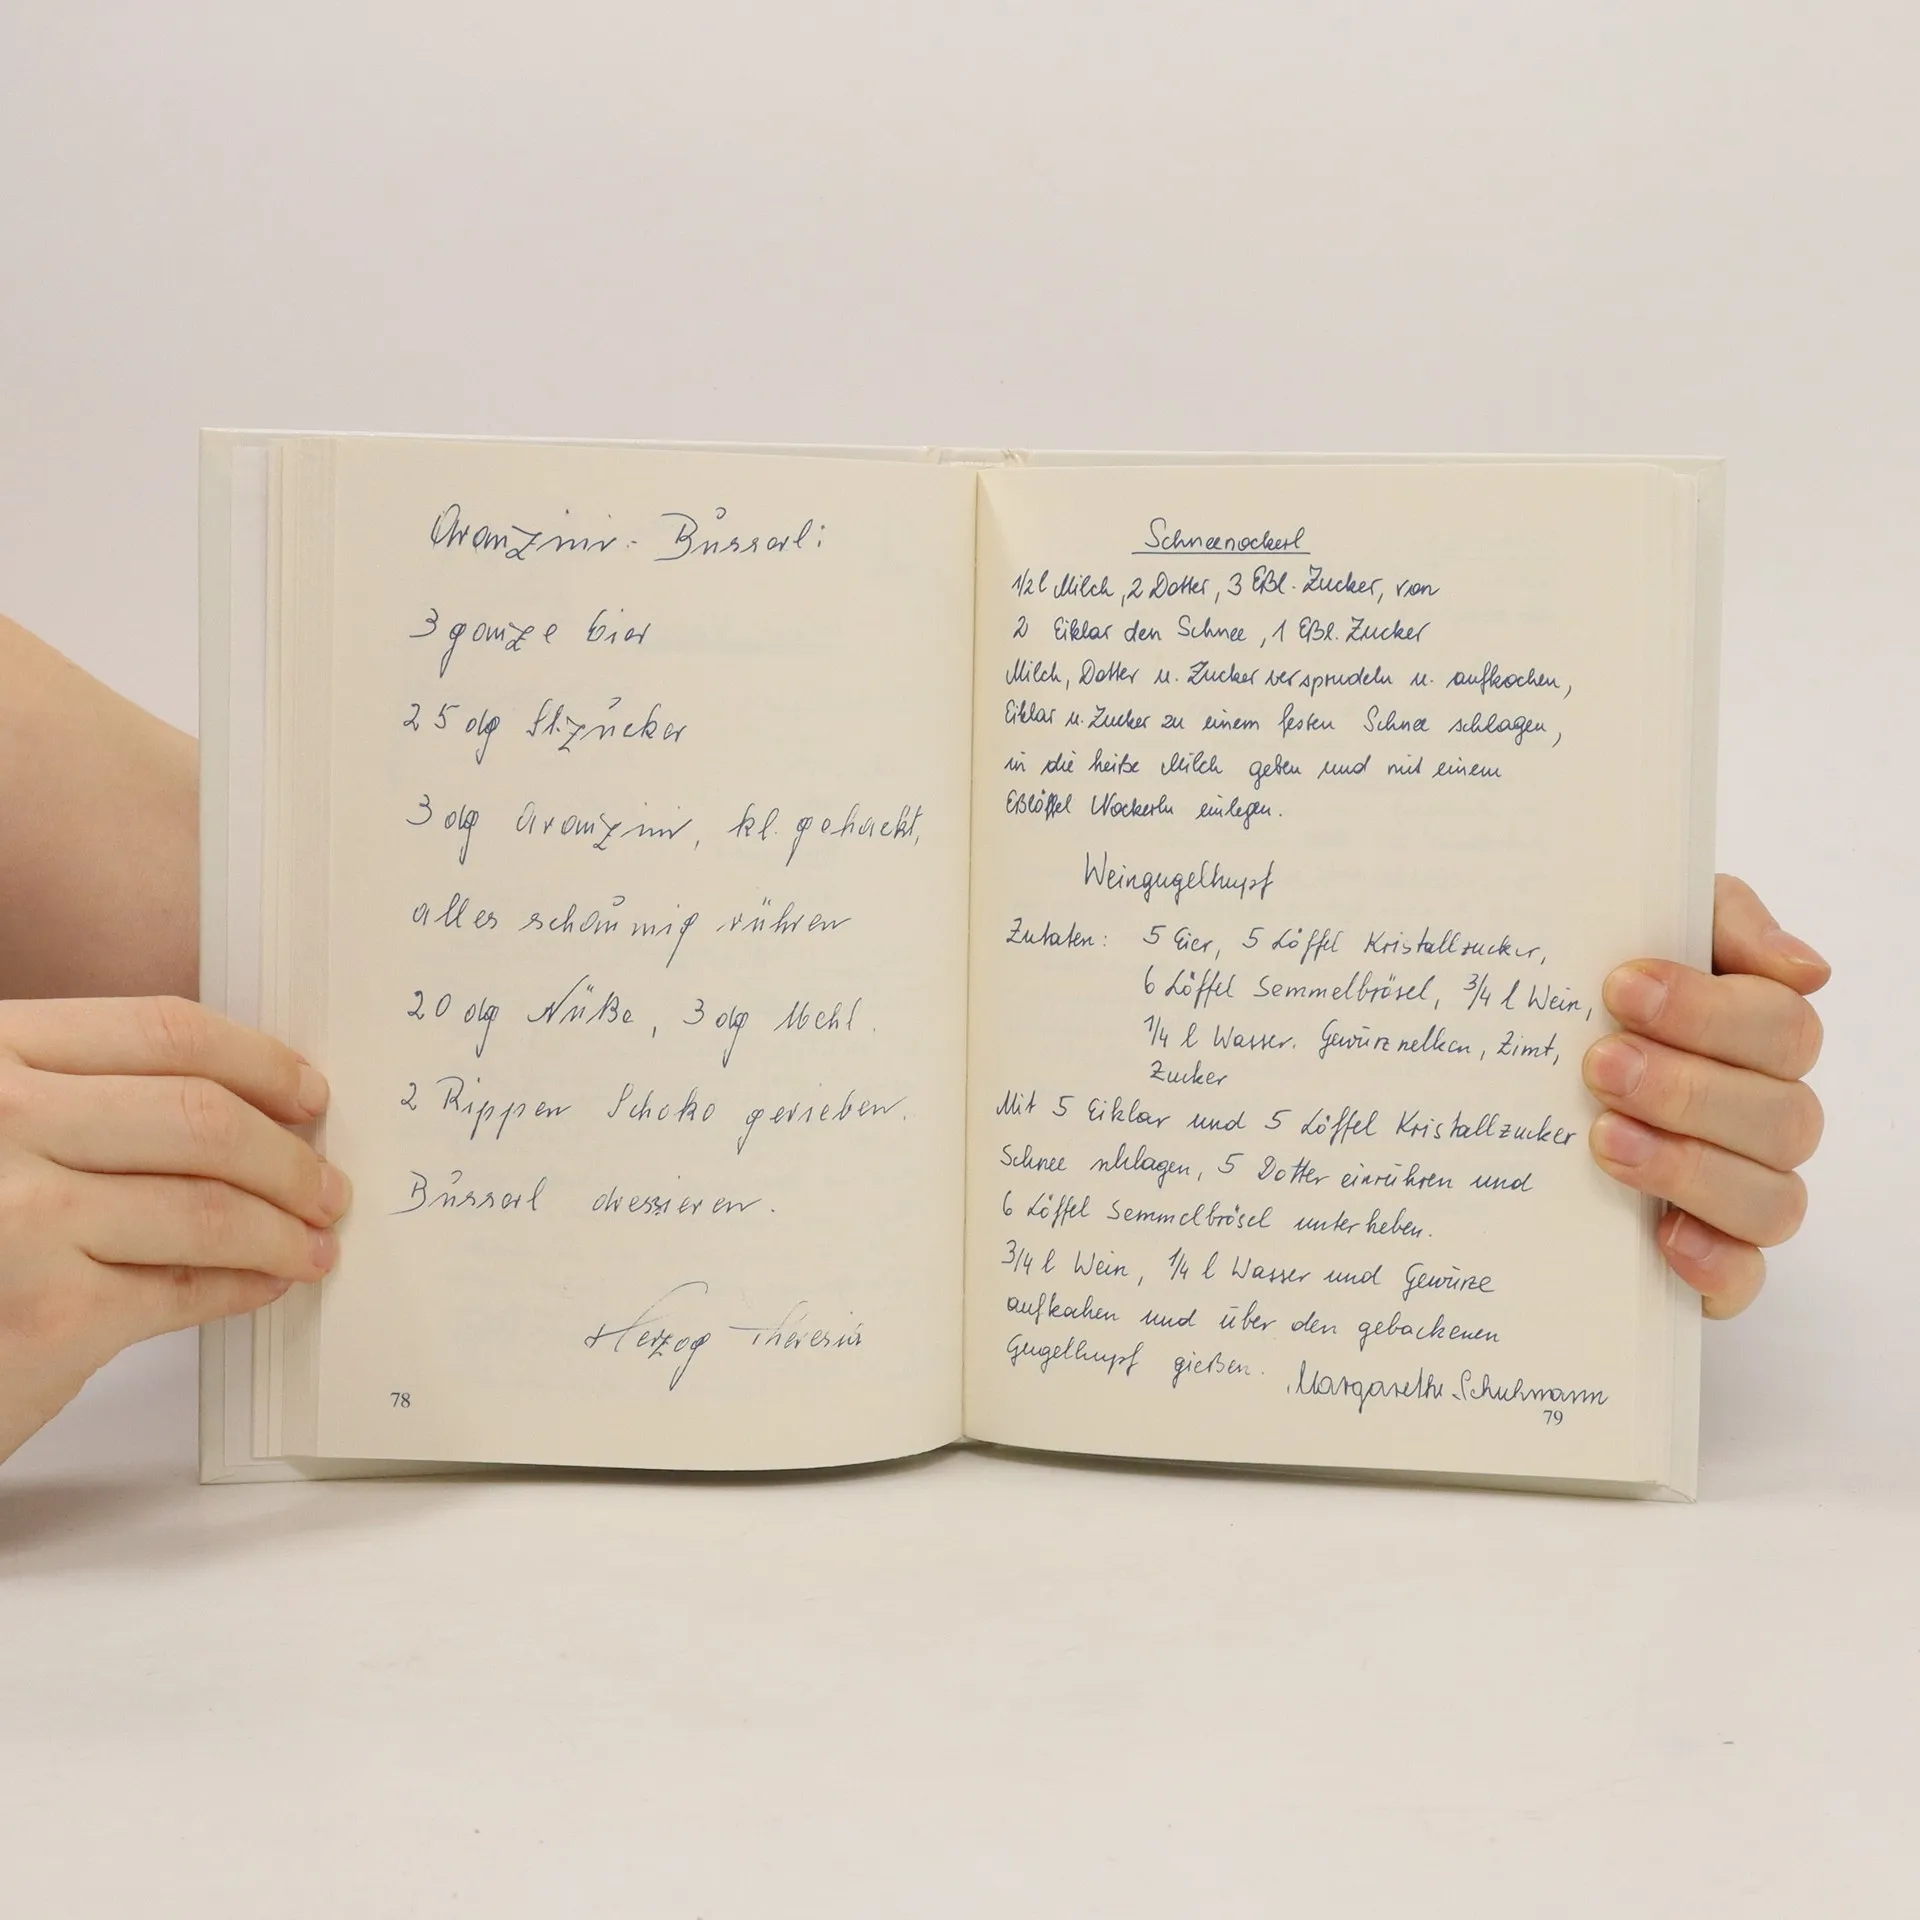 Aranzini-Busserl:
3 ganze Eier
25 dg St.zucker
3 dg Aranzini, kl. gehackt,
alles schaumig rühren
20 dg Nüße, 3 dg Mehl.
2 Rippen Schoko gerieben.
Busserl dressieren.
Herzog Theresia
78
Schneenockerl
1/2 l Milch, 2 Dotter, 3 Eßl. Zucker, von
2 Eiklar den Schnee, 1 Eßl. Zucker
Milch, Dotter u. Zucker versprudeln u. aufkochen,
Eiklar u. Zucker zu einem festen Schnee schlagen,
in die heiße Milch geben und mit einem
Eßlöffel Nockerln einlegen.
Weingugelhupf
Zutaten: 5 Eier, 5 Löffel Kristallzucker,
6 Löffel Semmelbrösel, 3/4 l Wein,
1/4 l Wasser. Gewürznelken, Zimt,
Zucker
Mit 5 Eiklar und 5 Löffel Kristallzucker
Schnee schlagen, 5 Dotter einrühren und
6 Löffel Semmelbrösel unterheben.
3/4 l Wein, 1/4 l Wasser und Gewürze
aufkochen und über den gebackenen
Gugelhupf gießen.
Margarethe Schuhmann
79